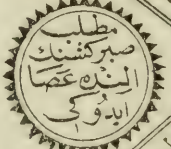 مطلب
صبركشنك
النده عصا
ايدوكى